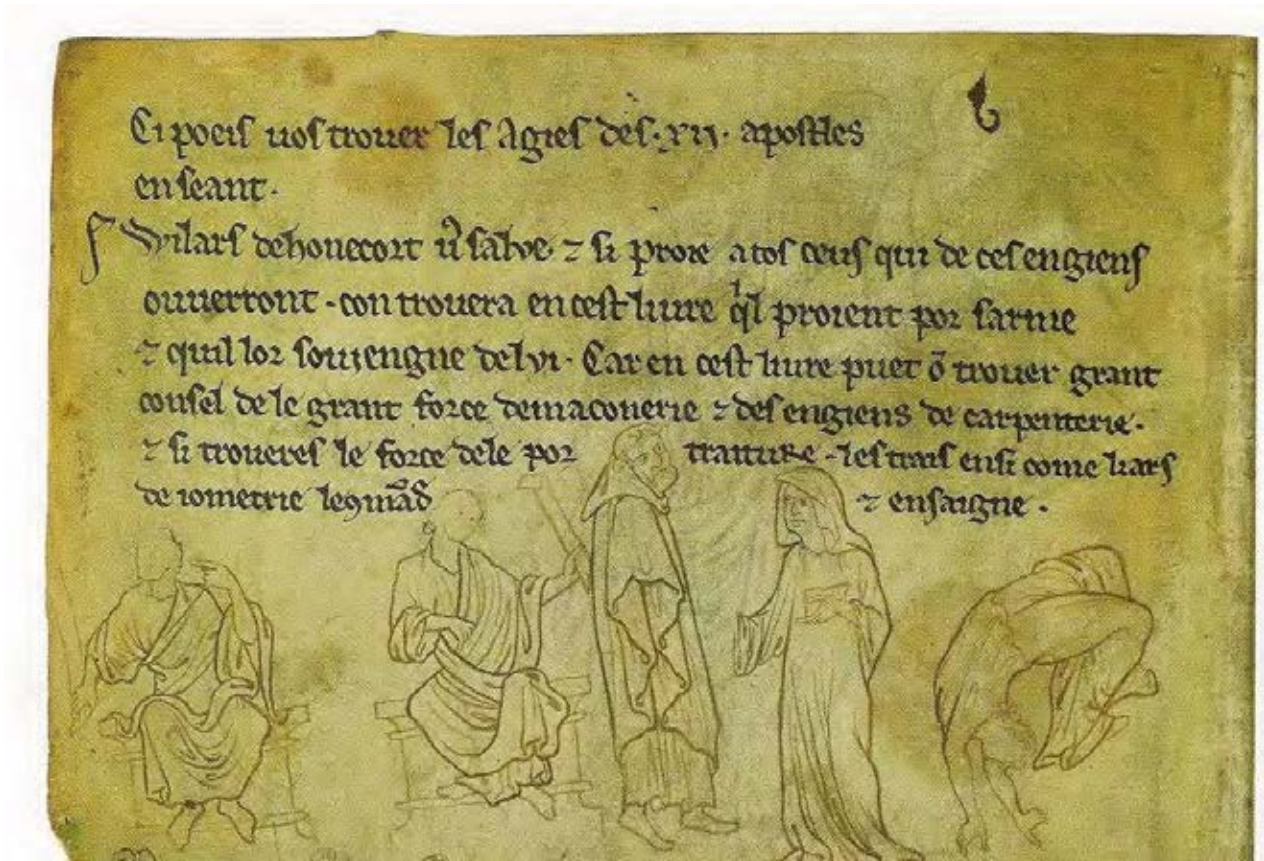 Ci poeis vos trover les agies des .xii. apostles
en seant.
Wilars dehonecort vͦ salve ⁊ si proie a tos ceus qui de ces engiens
ouverront. con trovera en cest livre qͥl proient por sarme
⁊ quil lor soviengne delvi. Car en cest livre puet ō trover grant
consel de le grant force demaconerie ⁊ des engiens de carpenterie.
⁊ si troveres le force dele por traiture. les trais ensi come liars
de iometrie le ꝯmād ⁊ ensaigne.